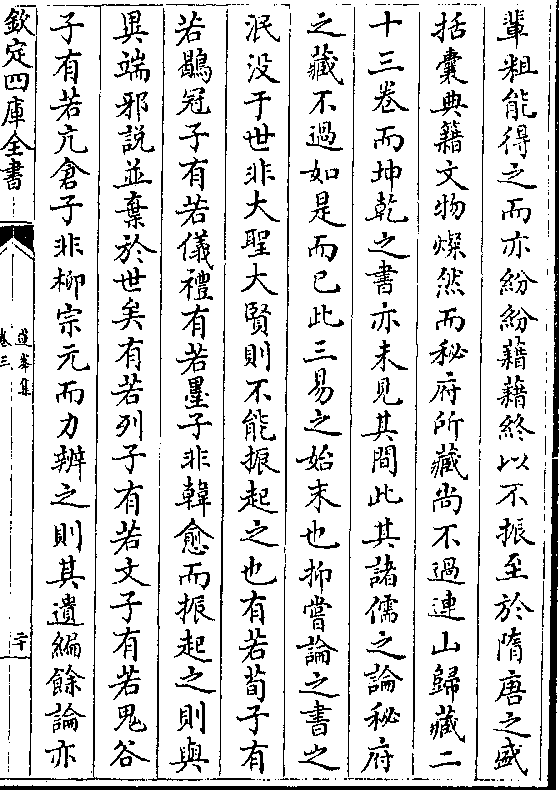 輩粗能得之而亦紛紛藉藉終以不振至於隋唐之盛
括囊典籍文物燦然而秘府所藏尚不過連山歸藏二
十三卷而坤乾之書亦未見其間此其諸儒之論秘府
之藏不過如是而已此三易之始末也抑嘗論之書之
泯没于世非大聖大賢則不能振起之也有若荀子有
若鶡冠子有若儀禮有若墨子非韓愈而振起之則與
異端邪説並棄於世矣有若列子有若文子有若鬼谷
子有若亢倉子非柳宗元而力辨之則其遺編餘論亦
欽定四庫全書
卷三
二十